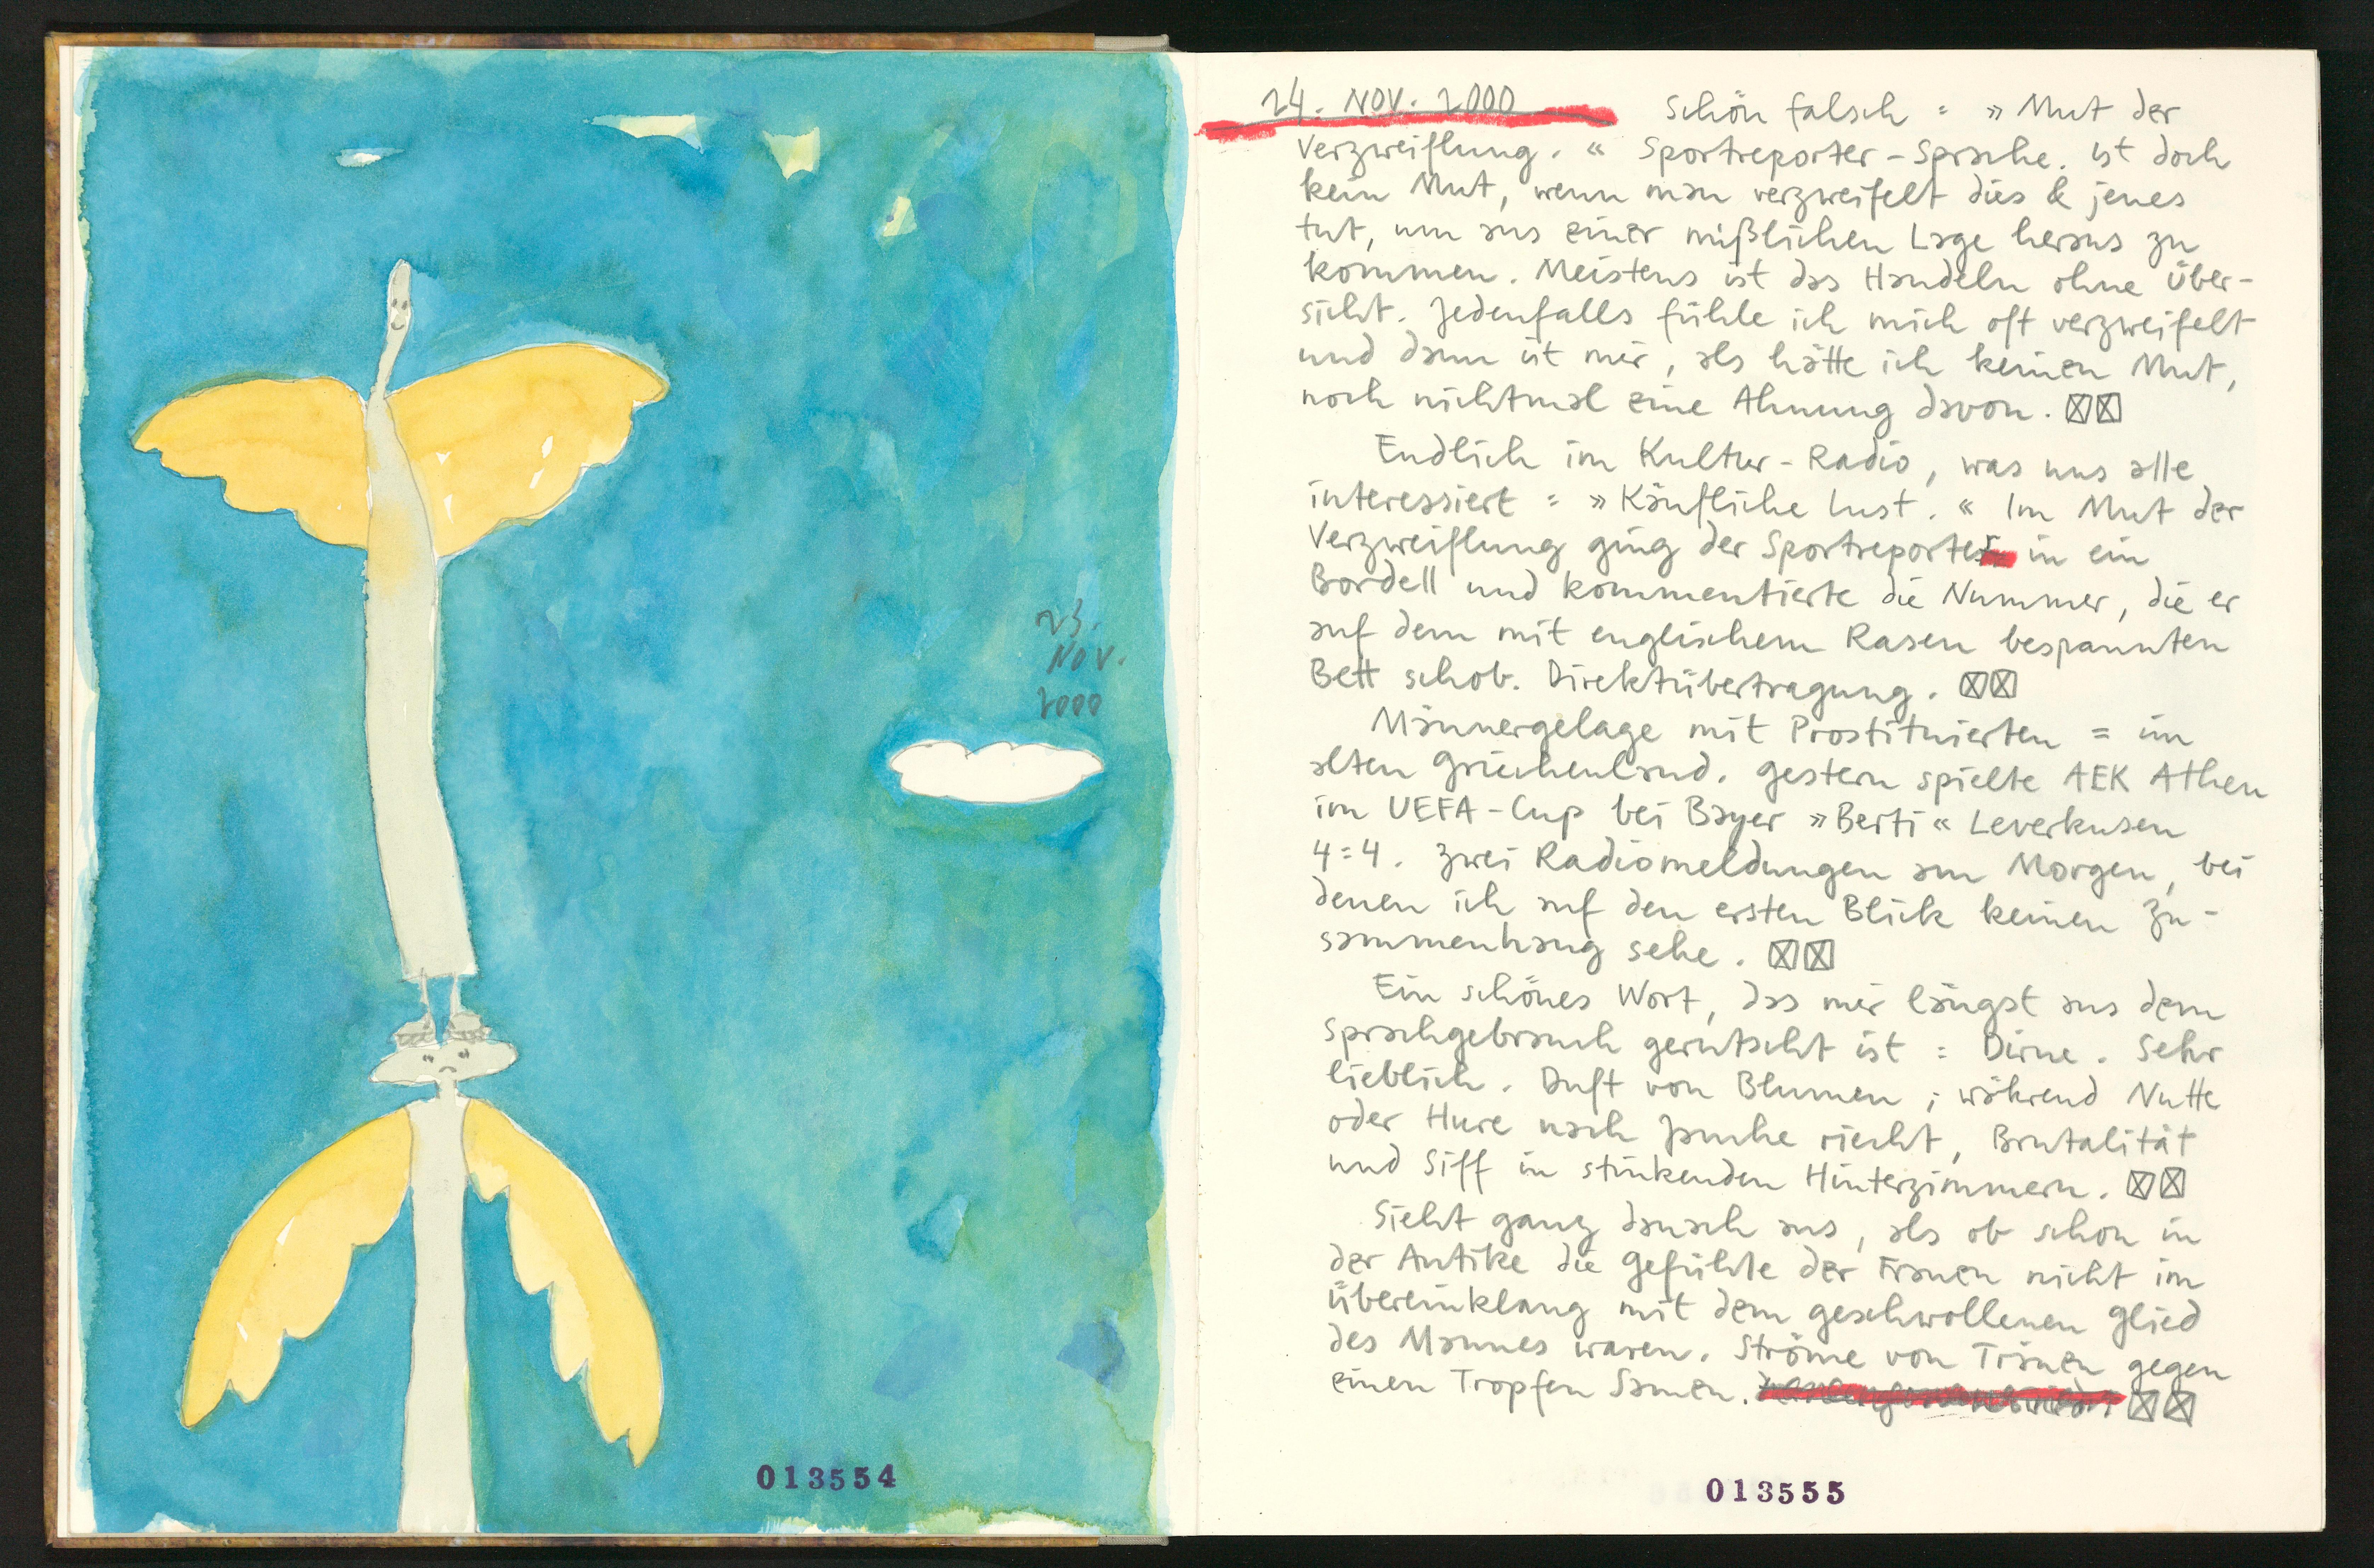 23.
NOV.
2000
013554
24. NOV. 2000 Schön falsch : » Mut der
Verzweiflung. « Sportreporter-Sprache. Ist doch
kein Mut, wenn man verzweifelt dies & jenes
tut, um aus einer mißlichen Lage heraus zu
kommen. Meistens ist das Handeln ohne Über-
sicht. Jedenfalls fühle ich mich oft verzweifelt
und dann ist mir, als hätte ich keinen Mut,
noch nichtmal eine Ahnung davon.
Endlich im Kultur-Radio, was uns alle
interessiert : » Käufliche Lust. « Im Mut der
Verzweiflung ging der Sportreporter in ein
Bordell und kommentierte die Nummer, die er
auf dem mit englischem Rasen bespannten
Bett schob. Direktübertragung.
Männergelage mit Prostituierten = im
alten Griechenland. Gestern spielte AEK Athen
im UEFA-Cup bei Bayer »Berti« Leverkusen
4:4. Zwei Radiomeldungen am Morgen, bei
denen ich auf den ersten Blick keinen Zu-
sammenhang sehe.
Ein schönes Wort, das mir längst aus dem
Sprachgebrauch gerutscht ist : Dirne. Sehr
lieblich. Duft von Blumen ; während Nutte
oder Hure nach Jauche riecht, Brutalität
und Siff in stinkenden Hinterzimmern.
Sieht ganz danach aus, als ob schon in
der Antike die Gefühle der Frauen nicht im
Übereinklang mit dem geschwollenen Glied
des Mannes waren. Ströme von Tränen gegen
einen Tropfen Samen.
013555